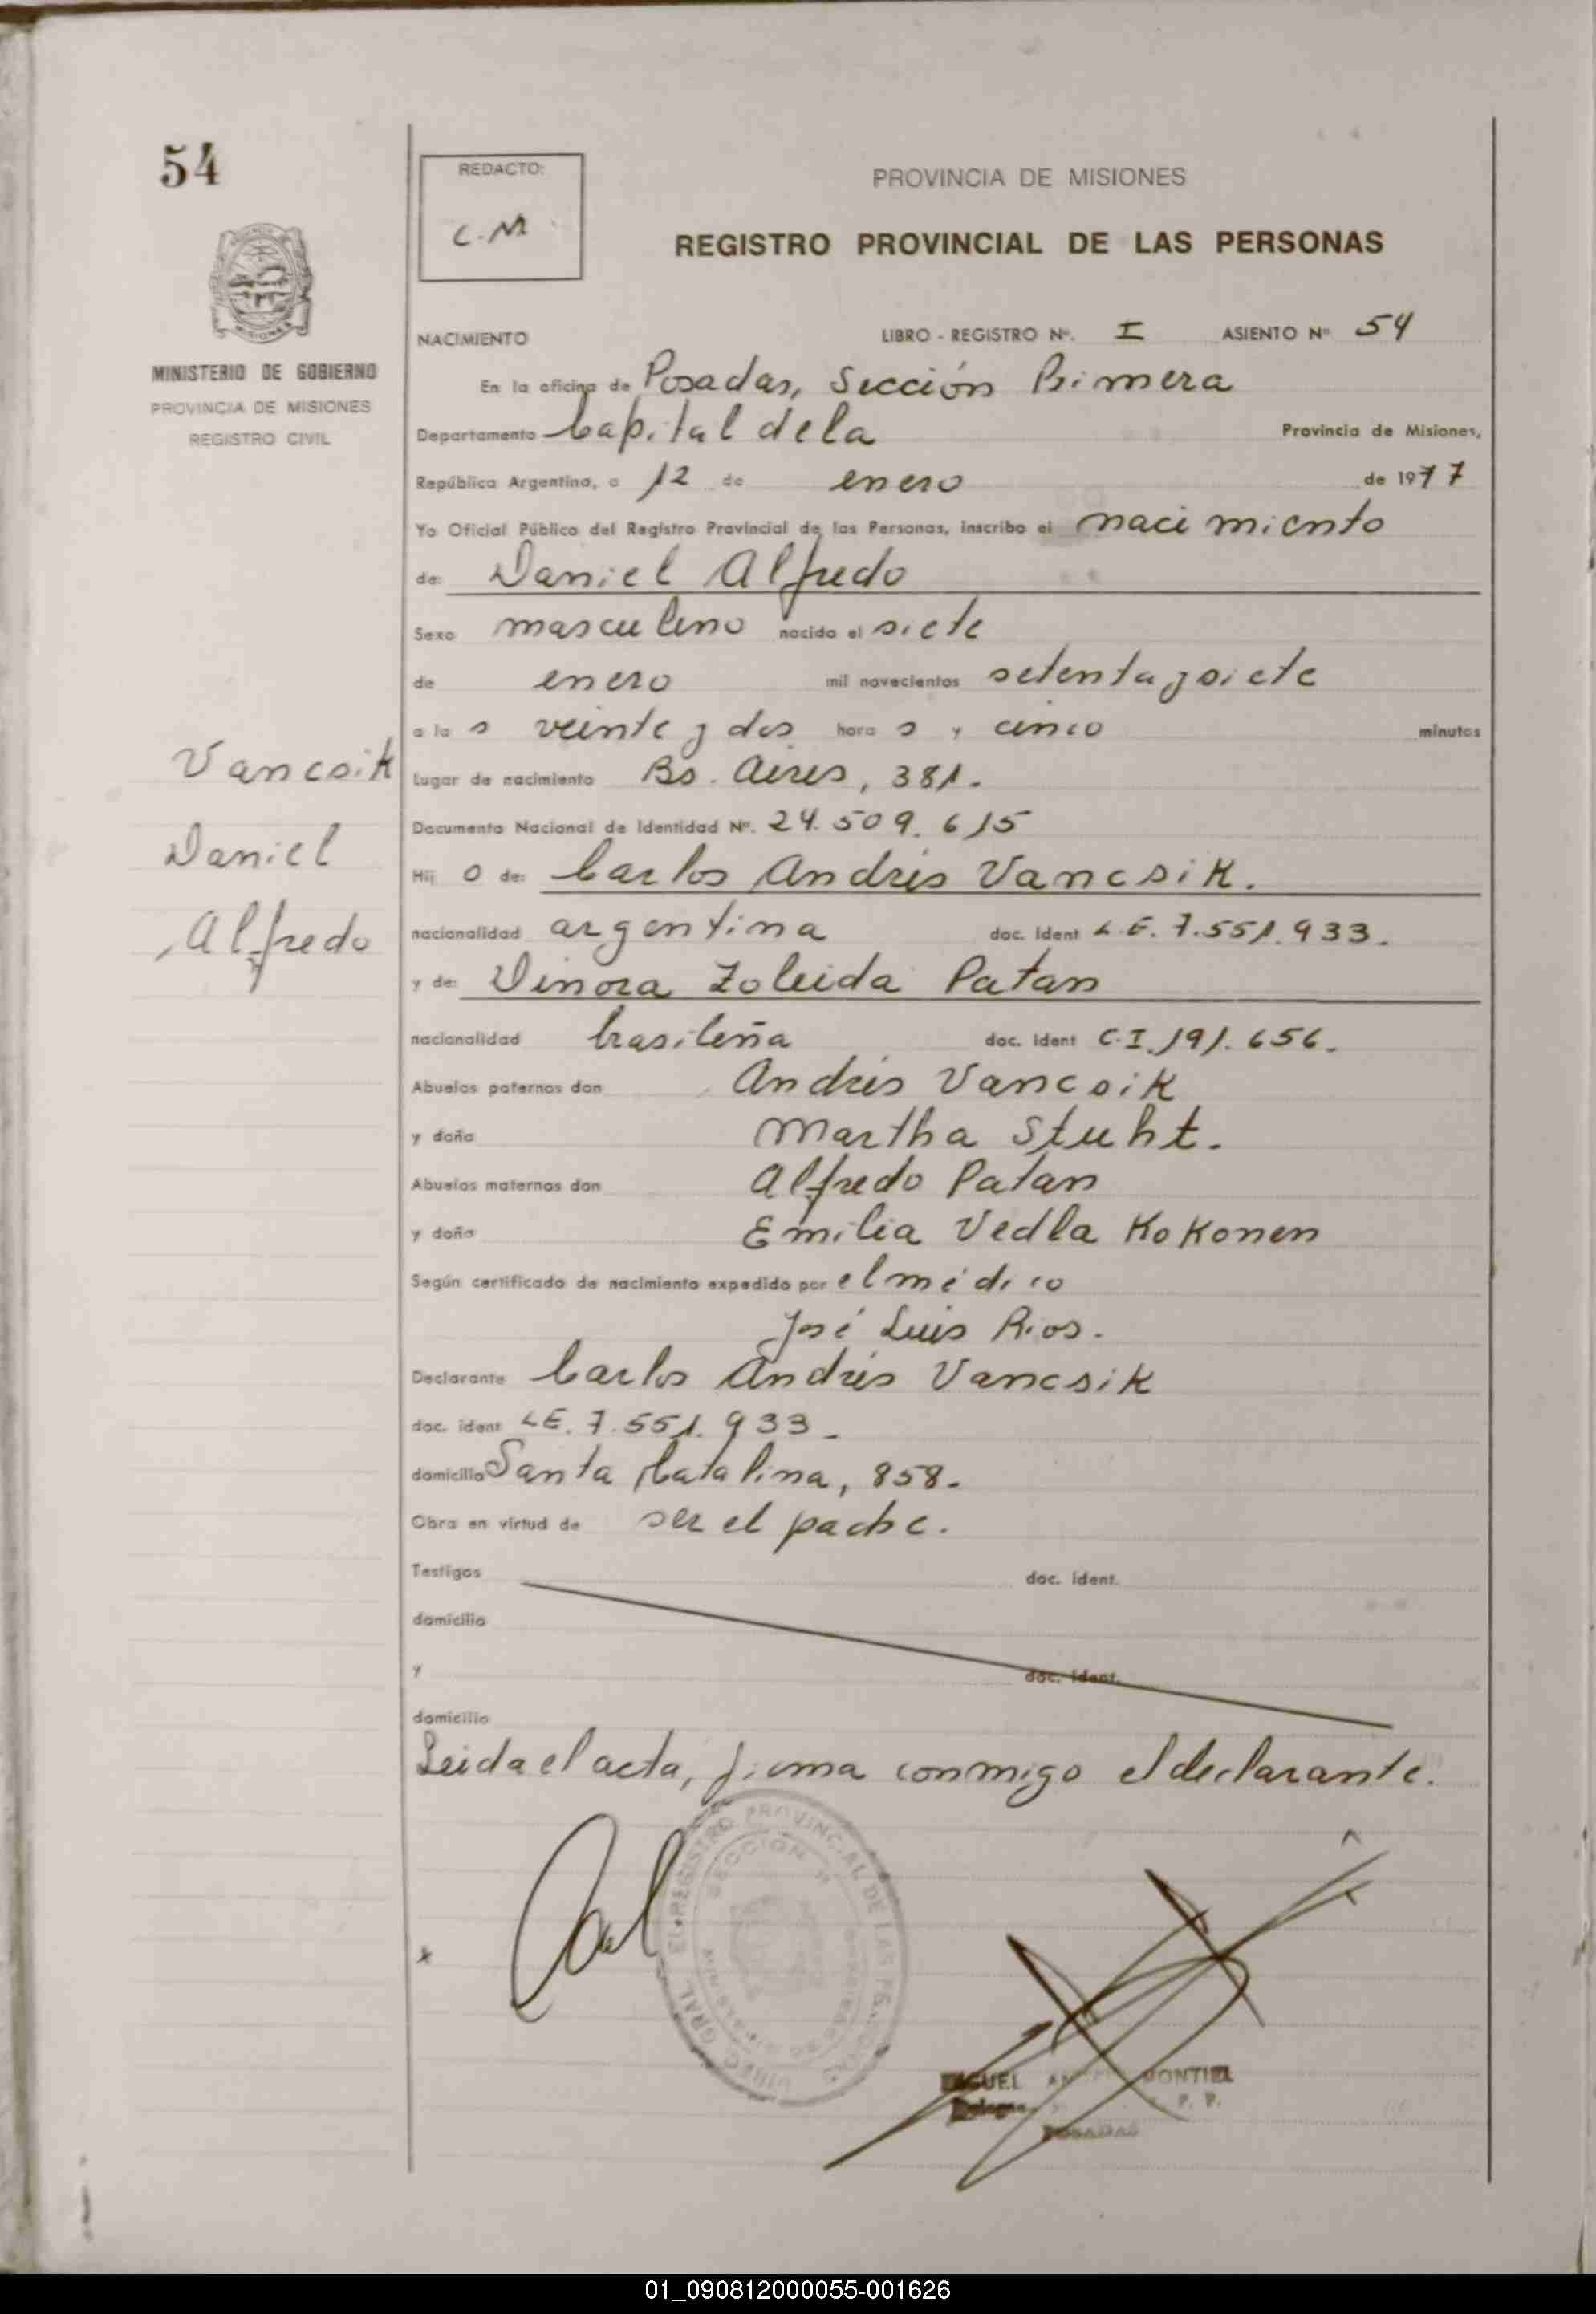 54
REDACTO:
C.M
PROVINCIA DE MISIONES
REGISTRO PROVINCIAL DE LAS PERSONAS
MINISTERIO DE GOBIERNO
PROVINCIA DE MISIONES
REGISTRO CIVIL
NACIMIENTO LIBRO - REGISTRO Nº. I ASIENTO Nº 54
En la oficina de Posadas, Sección Primera
Departamento Capital de la Provincia de Misiones,
República Argentina, a 12 de enero de 1977
Yo Oficial Público del Registro Provincial de las Personas, inscribo el nacimiento
de: Daniel Alfredo
Sexo masculino nacido el siete
de enero mil novecientos setenta y siete
a la s veinte y dos hora s y cinco minutos
Vancsik
Lugar de nacimiento Bs. Aires, 381.
Documento Nacional de Identidad Nº. 24.509.615
Daniel
Hij o de: Carlos Andrés Vancsik.
Alfredo
nacionalidad argentina doc. ident L.E. 7.551.933.
y de: Dinora Zoleida Patan
nacionalidad brasileña doc. ident C.I. 191.656.
Abuelos paternos don Andrés Vancsik
y doña Martha Stuht.
Abuelos maternos don Alfredo Patan
y doña Emilia Vedla Kokonen
Según certificado de nacimiento expedido por el médico
José Luis Rios.
Declarante Carlos Andrés Vancsik
doc. ident LE. 7.551.933.
domicilio Santa Catalina, 858.
Obra en virtud de ser el padre.
Testigos doc. ident.
domicilio
y doc. ident.
domicilio
Leida el acta, firma conmigo el declarante.
DIREC. GRAL. EL REGISTRO PROVINCIAL DE LAS PERSONAS
SECCION
MIGUEL MONTIEL
POSADAS
01_090812000055-001626